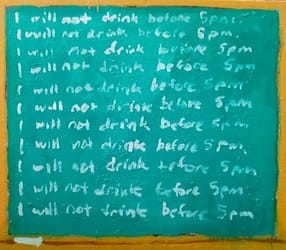 I will not drink before 5pm.
I will not drink before 5pm.
I will not drink before 5pm
I will not drink before 5pm
I will not drink before 5pm.
I will not drink before 5pm
I will not drink before 5pm
I will not drink before 5pm.
I will not drink before 5pm
I will not drink before 5pm.
I will not drink before 5pm